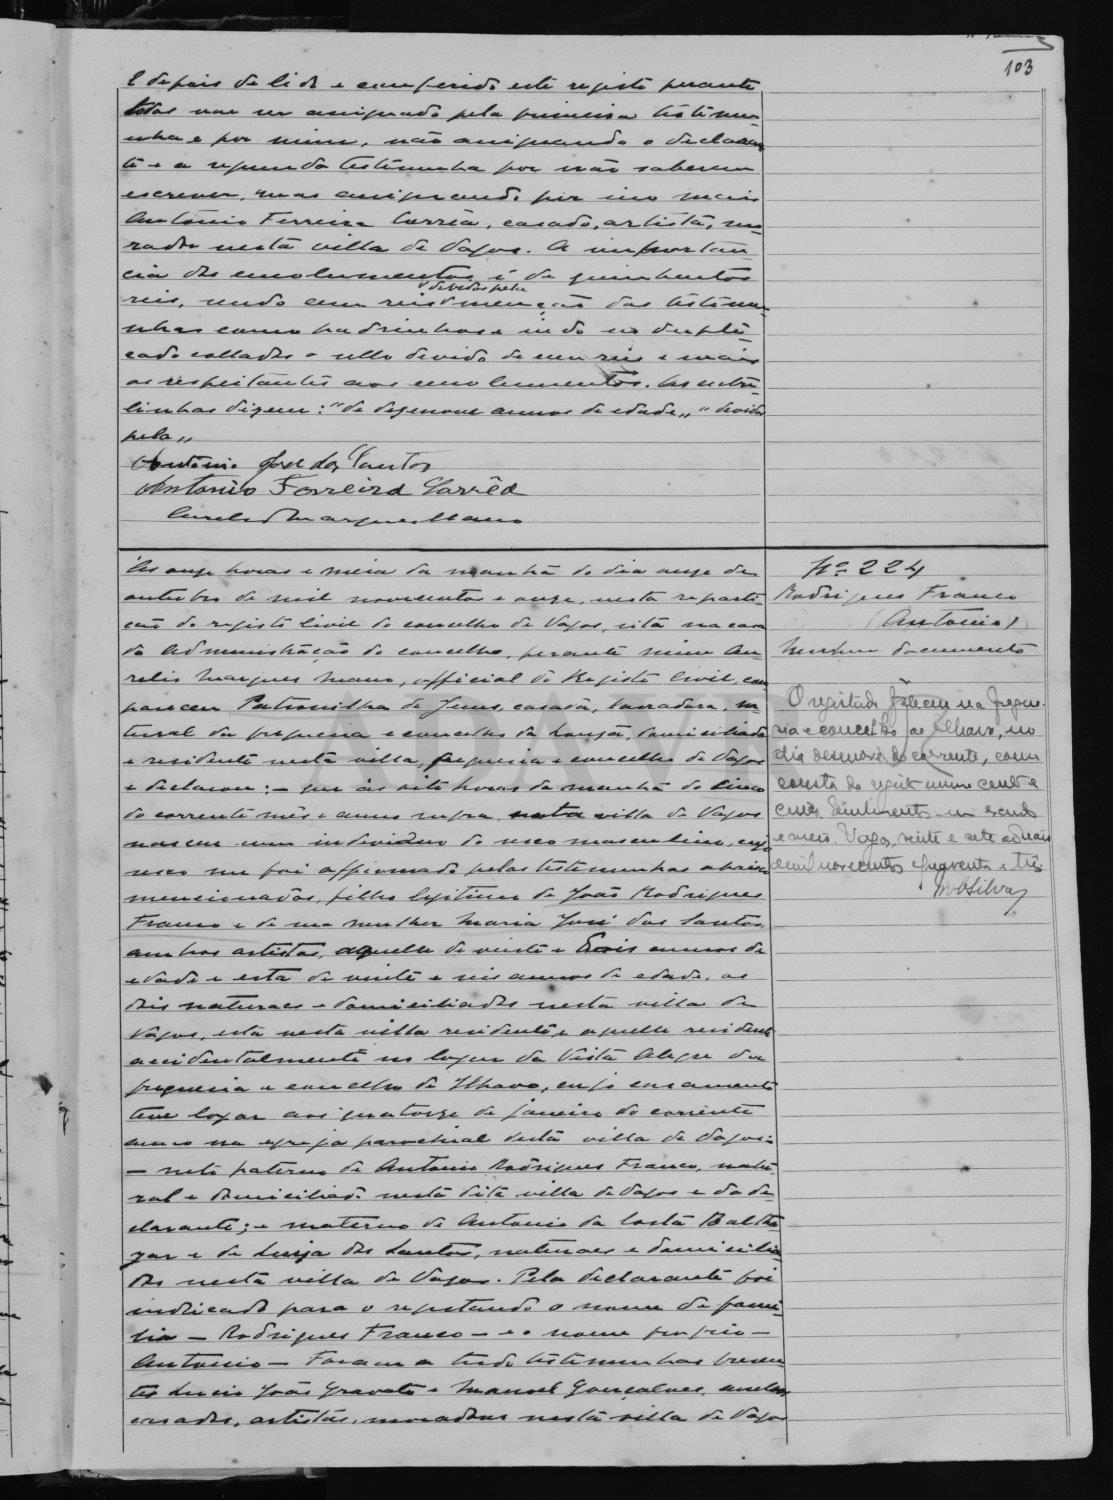 103
E depois de lido e conferido este registo perante
todos vae ser assignado pela primeira testemu-
nha e por mim, não assignando o declaran-
te e a segunda testemunha por não saberem
escrever, mas assignando por
Antonio Ferreira Corrêa, casado, artista, mo-
rador nesta villa de Vagos. A importan-
cia dos emolumentos é de quinhentos
reis, sendo cem reis devidos pela menção das testemu-
nhas como padrinhos e indo no dupli-
cado collados o sello devido de cem reis e mais
os respeitantes aos emolumentos. As entre-
linhas dizem: "de dezenove annos de edade", "devidos
pela"
Antonio José dos Santos
Antonio Ferreira Corrêa
Aurelio Marques Mano
Às onze horas e meia da manhã do dia onze de
outubro de mil novecentos e onze, nesta reparti-
ção do registo civil do concelho de Vagos, sita na casa
da Administração do concelho, perante mim Au-
relio Marques Mano, official do Registo Civil, com-
pareceu Petronilha de Jesus, casada, lavradora, na-
tural da freguesia e concelho da Louzã, domiciliada
e residente nesta villa, freguesia e concelho de Vagos
e declarou: - que ás oito horas da manhã do cinco
do corrente mês e anno supra, nesta villa de Vagos
nasceu um individuo do sexo masculino, cujo
sexo me foi affirmado pelas testemunhas abaixo
mencionadas, filho legitimo de João Rodrigues
Franco e de sua mulher Maria José dos Santos,
ambos artistas, aquelle de vinte e dois annos de
edade e esta de vinte e seis annos de edade, os
dois naturaes e domiciliados nesta villa de
Vagos, esta nesta villa residente, e aquelle residente
accidentalmente no logar da Vista Alegre da
freguesia e concelho de Ilhavo, cujo casamento
teve logar aos quatorze de janeiro do corrente
anno na egreja parochial desta villa de Vagos:
- neto paterno de Antonio Rodrigues Franco, natu-
ral e domiciliado nesta dita villa de Vagos e da de-
clarante; e materno de Antonio da Costa Baltha-
zar e de Luiza dos Santos, naturaes e domicilia-
dos nesta villa de Vagos. Pela declarante foi
indicado para o registando o nome de fami-
lia - Rodrigues Franco - e o nome proprio -
Antonio - Foram a tudo testemunhas presen-
tes Lucio João Gravato e Manoel Gonçalves, ambos
casados, artistas, moradores nesta villa de Vagos
Nº 224
Rodrigues Franco
(Antonio)
Nenhum documento
O registado faleceu na fregue-
sia e concelho de Ilhavo, no
dia desenove do corrente, como
consta do registo numero cento e
cinco. Emolumento - um escudo
e meio. Vagos, vinte e sete de Maio
de mil novecentos e quarenta e três
ADAVR